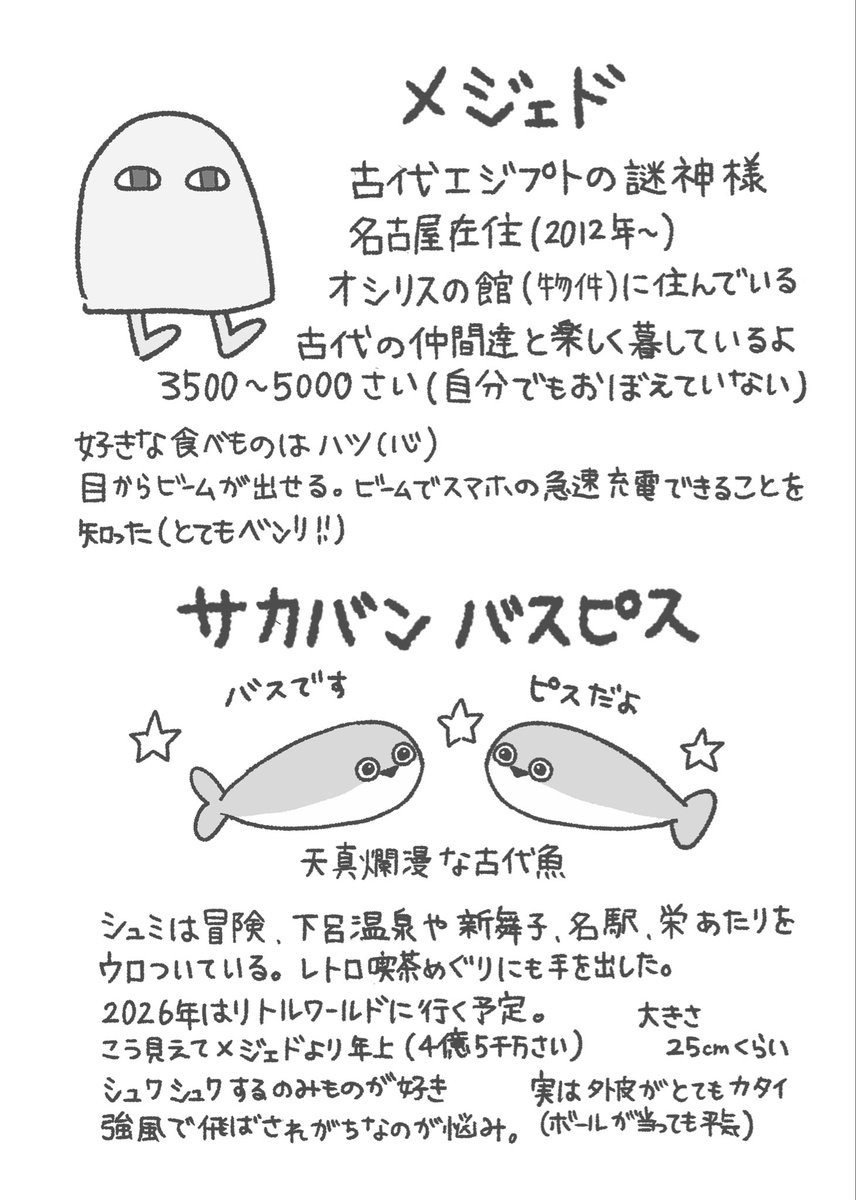 メジェド
古代エジプトの謎神様
名古屋在住(2012年〜)
オシリスの館(物件)に住んでいる
古代の仲間達と楽しく暮しているよ
3500〜5000さい(自分でもおぼえていない)
好きな食べものはハツ(心)
目からビームが出せる。ビームでスマホの急速充電できることを
知った(とてもベンリ!!)
サカバンバスピス
バスです
ピスだよ
天真爛漫な古代魚
シュミは冒険、下呂温泉や新舞子、名駅、栄あたりを
ウロついている。レトロ喫茶めぐりにも手を出した。
2026年はリトルワールドに行く予定。
こう見えてメジェドより年上(4億5千万さい)
大きさ
25cmくらい
シュワシュワするのみものが好き
強風で飛ばされがちなのが悩み。
実は外皮がとてもカタイ
(ボールが当っても平気)